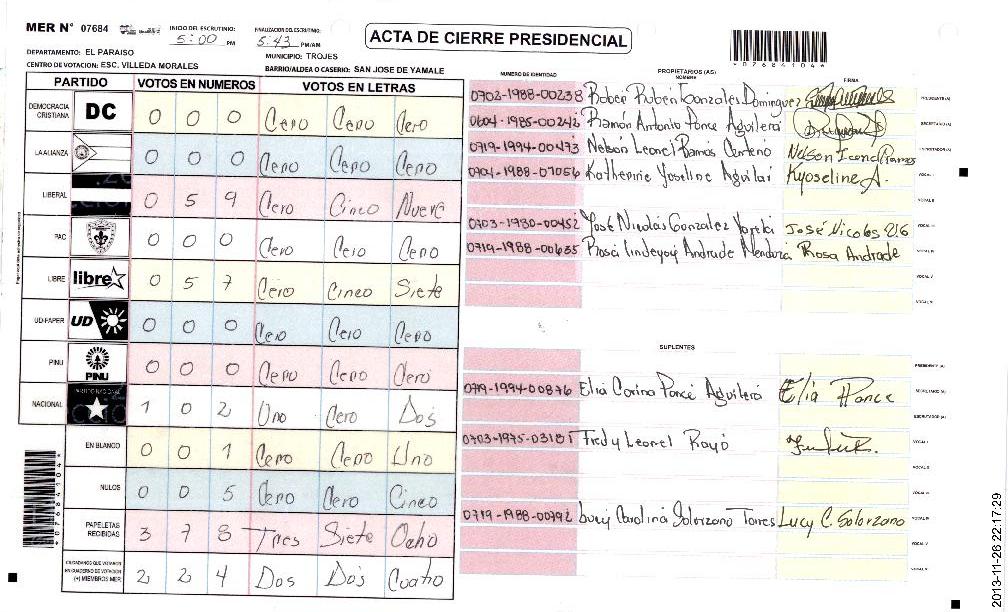 MER N° 07684
INICIO DEL ESCRUTINIO: 5:00 PM
FINALIZACION DEL ESCRUTINIO: 5:43 PM/AM
ACTA DE CIERRE PRESIDENCIAL
*07684104*
DEPARTAMENTO: EL PARAISO
MUNICIPIO: TROJES
CENTRO DE VOTACION: ESC. VILLEDA MORALES
BARRIO/ALDEA O CASERIO: SAN JOSE DE YAMALE
PARTIDO VOTOS EN NUMEROS VOTOS EN LETRAS
DEMOCRACIA CRISTIANA DC 0 0 0 Cero Cero Cero
LA ALIANZA 0 0 0 Cero Cero Cero
LIBERAL 0 5 9 Cero Cinco Nueve
PAC 0 0 0 Cero Cero Cero
LIBRE libre 0 5 7 Cero Cinco Siete
UD-FAPER UD 0 0 0 Cero Cero Cero
PINU PINU 0 0 0 Cero Cero Cero
NACIONAL PARTIDO NACIONAL 1 0 2 Uno Cero Dos
EN BLANCO 0 0 1 Cero Cero Uno
NULOS 0 0 5 Cero Cero Cinco
PAPELETAS RECIBIDAS 3 7 8 Tres Siete Ocho
CIUDADANOS QUE VOTARON EN CUADERNO DE VOTACION (+) MIEMBROS MER 2 2 4 Dos Dos Cuatro
*07684104*
NUMERO DE IDENTIDAD PROPIETARIOS (AS) NOMBRE FIRMA
0702-1988-00238 Rober Rubén Gonzales Dominguez PRESIDENTE (A)
0604-1985-00242 Ramón Antonio Ponce Aguilera SECRETARIO (A)
0719-1994-00473 Nelson Leonel Ramos Centeno Nelson Leonel Ramos ESCRUTADOR (A)
0704-1988-01056 Katherine Yoseline Aguilar Kyoseline A. VOCAL I
VOCAL II
0703-1980-00452 José Nicolas Gonzalez José Nicolas VOCAL III
0719-1988-00635 Rosa Andrade Mendoza Rosa Andrade VOCAL IV
VOCAL V
VOCAL VI
SUPLENTES
PRESIDENTE (A)
0719-1994-00876 Elia Corina Ponce Aguilera Elia Ponce SECRETARIO (A)
ESCRUTADOR (A)
0703-1975-03181 Fredy Leonel Rayo VOCAL I
VOCAL II
VOCAL III
0719-1988-00792 Lucy Carolina Solorzano Torres Lucy C. Solorzano VOCAL IV
VOCAL V
VOCAL VI
2013-11-26 22:17:29